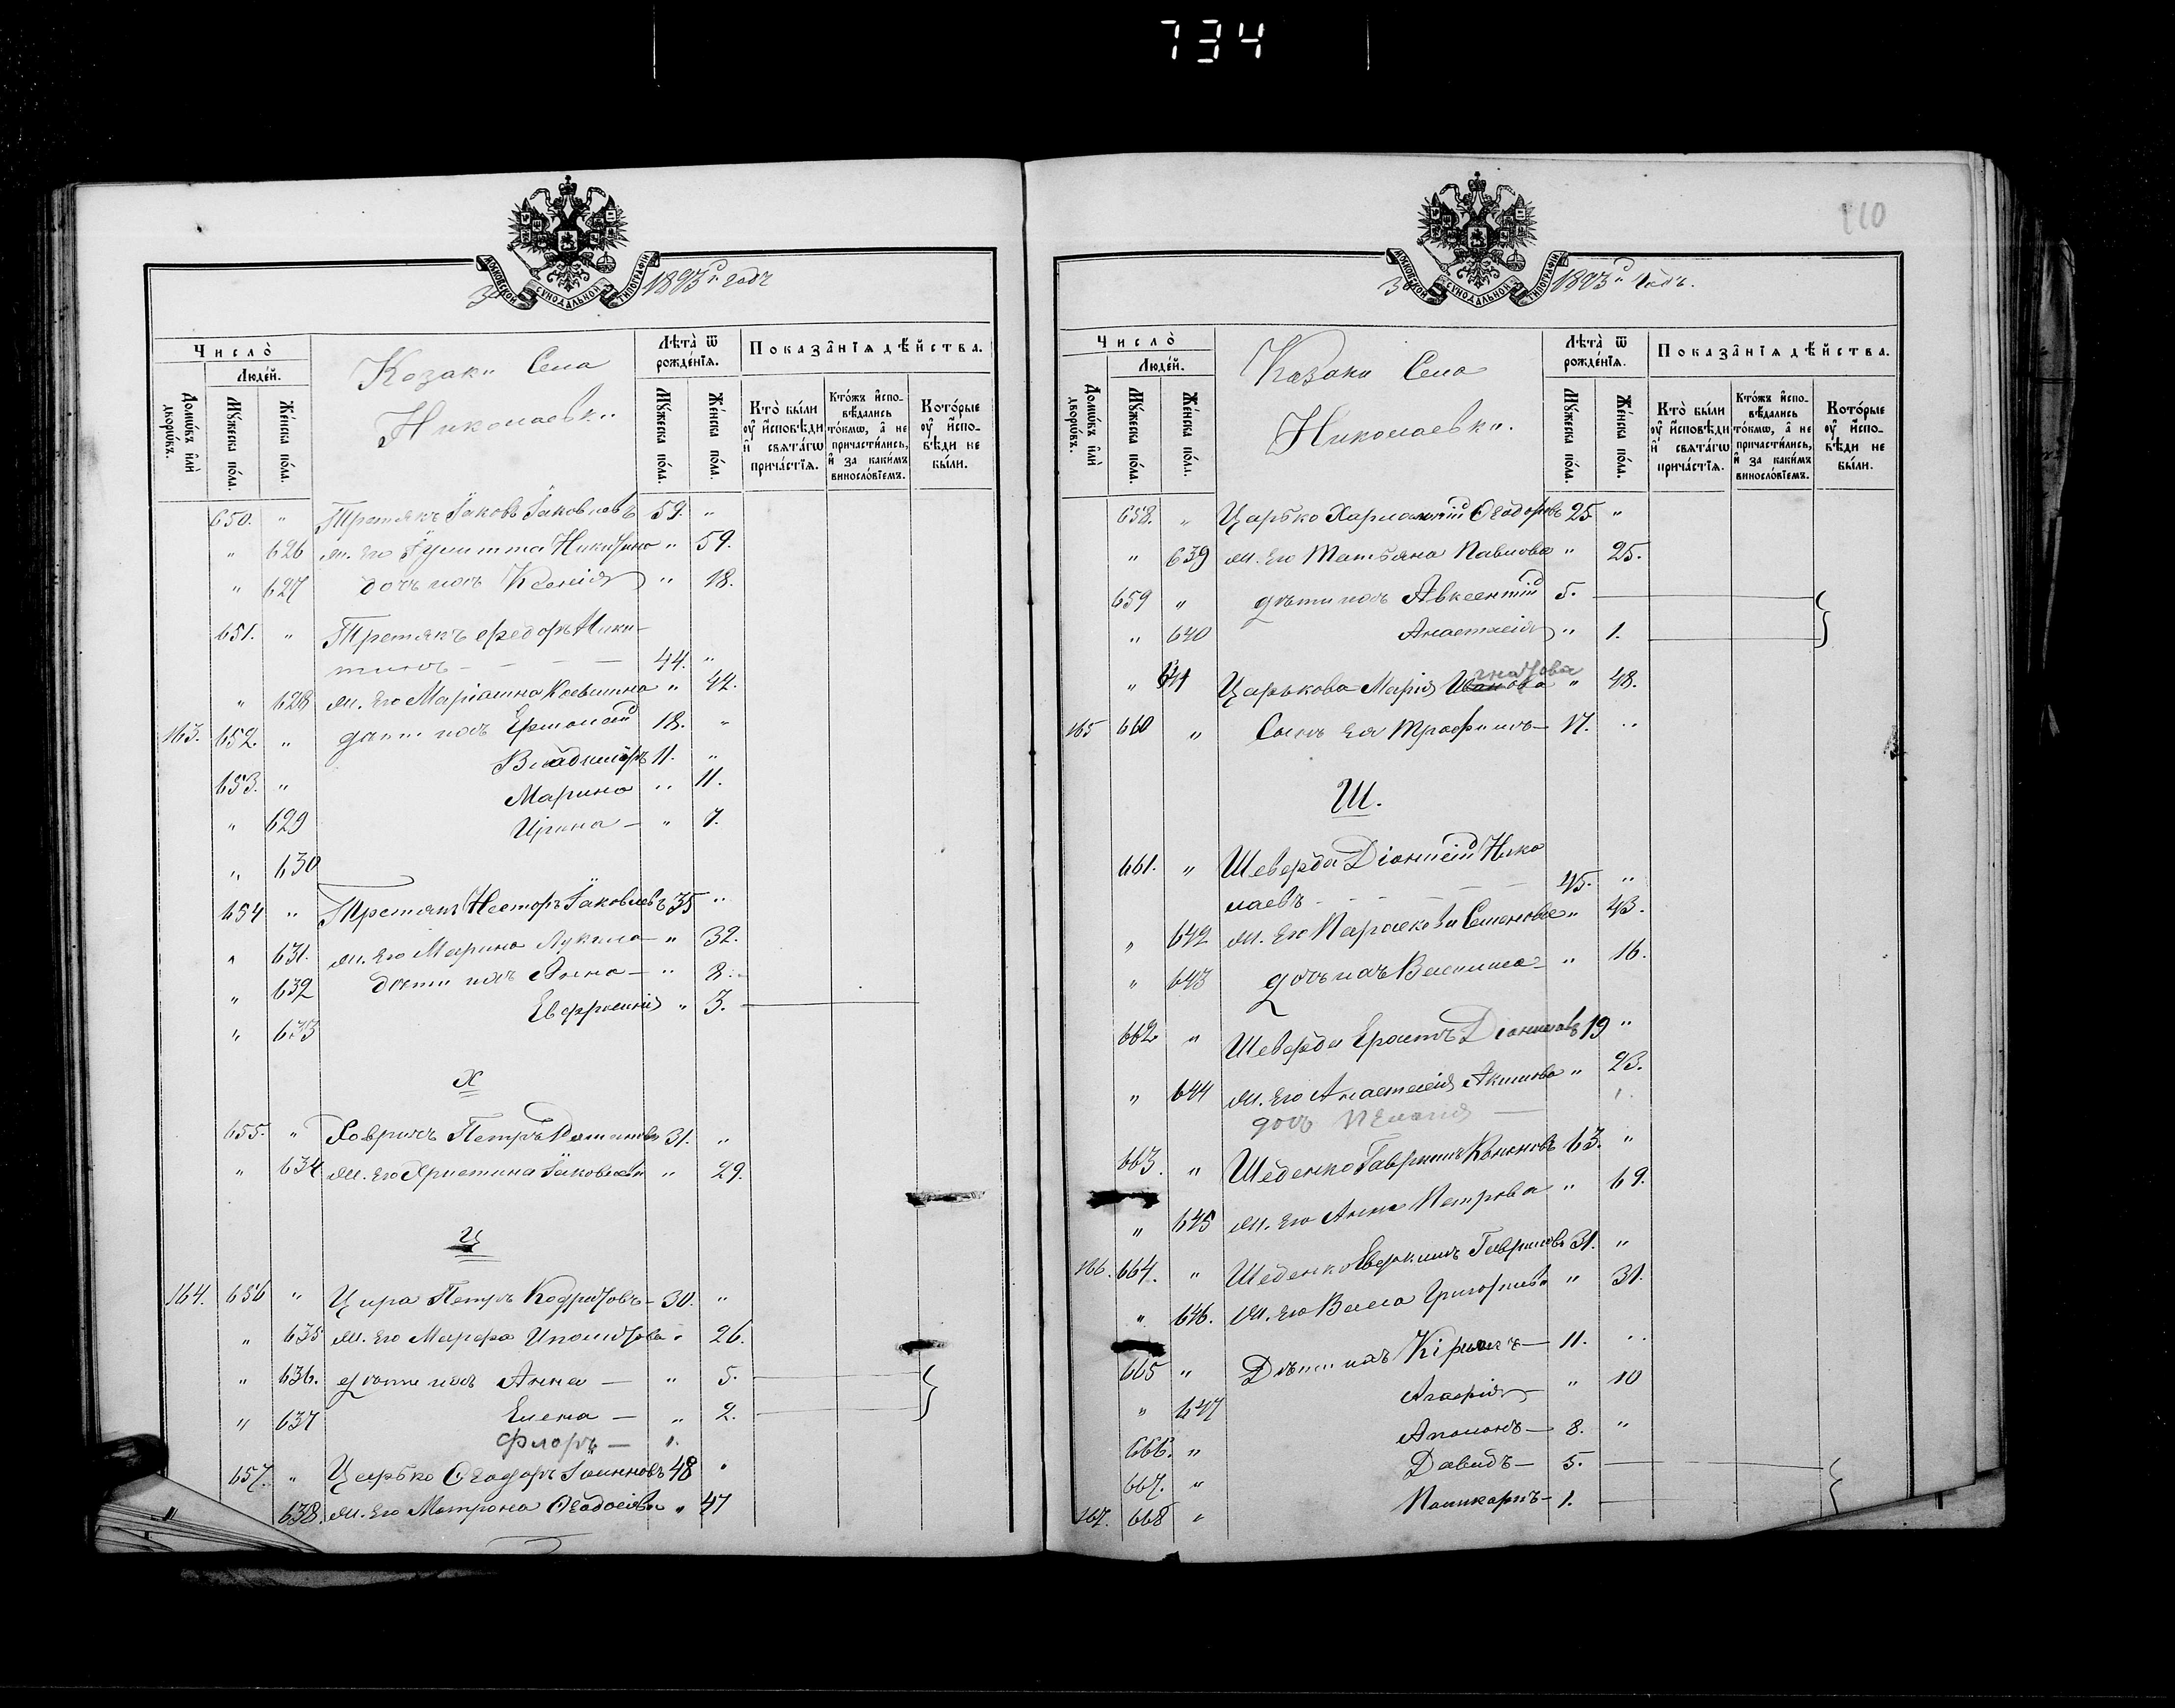 734
МОСКОВСКОЙ СѴНОДАЛЬНОЙ ТИПОГРАФІИ
За 1893й годъ
Число̀
Людей.
Домѡвъ и҆лѝ дворѡвъ.
Мꙋ́жеска по́ла.
Же́нска по́ла.
Козаки Села
Николаевки
Лѣта̀ ѿ рожде́нїѧ.
Мꙋ́жеска по́ла.
Же́нска по́ла.
Показа̑нїѧ дѣ́йства.
Кто̀ бы́ли ᲂу҆ и҆сповѣди и҆ свѧта́гѡ прича́стїѧ.
Кто́жъ и҆спо-вѣдались то́кмѡ, а҆ не причасти́лись, и҆ за каки́мъ винословїемъ.
Кото́рые ᲂу҆ и҆спо-вѣди не бы́ли.
650. " Третякъ Іаковъ Іаковлевъ 59. "
" 626 ж. его Іулитта Никитина " 59.
" 627 дочь ихъ Ксенія " 18.
651. " Третякъ Федоръ Ники-
тинъ - - - 44. "
" 628 ж. его Маріамна " 42.
163. 652. " дѣти ихъ Ермолай 18. "
653. " Владиміръ 11. "
" 629 Марина " 11.
" 630 Ирина - " 7.
654 " Третякъ Несторъ Іаковлевъ 35 "
" 631. ж. его Марина Лукина " 32.
" 632 дѣти ихъ Анна - " 8.
" 633 Евфросинія " 3.
Х
655. " Ховрихъ Петръ 31. "
" 634 ж. его Христина Іаковлева " 29.
Ц
164. 656 " Цира Петръ Кодратовъ - 30. "
" 635 ж. его Марфа Иполитова " 26.
" 636. дѣти ихъ Анна - " 5.
" 637 Елена - " 2.
Флоръ - 1.
657. " Царько Ѳеодоръ Іоанновъ 48 "
" 638. ж. его Матрона Ѳеодосіева " 47
110
МОСКОВСКОЙ СѴНОДАЛЬНОЙ ТИПОГРАФІИ
За 1893й годъ.
Число̀
Людей.
Домѡвъ и҆лѝ дворѡвъ.
Мꙋ́жеска по́ла.
Же́нска по́ла.
Казаки Села
Николаевки.
Лѣта̀ ѿ рожде́нїѧ.
Мꙋ́жеска по́ла.
Же́нска по́ла.
Показа̑нїѧ дѣ́йства.
Кто̀ бы́ли ᲂу҆ и҆сповѣди и҆ свѧта́гѡ прича́стїѧ.
Кто́жъ и҆спо-вѣдались то́кмѡ, а҆ не причасти́лись, и҆ за каки́мъ винословїемъ.
Кото́рые ᲂу҆ и҆спо-вѣди не бы́ли.
658. " Царько Харлампій Ѳеодоровъ 25 "
" 639 ж. его Татьяна Павлова " 25.
659 " дѣти ихъ Авксентій 5.
" 640 Анастасія " 1.
" 641 Царькова Марія Иванова Игнатова " 48.
165 660 " Сынъ ея Трофимъ - 17. "
Ш.
661. " Шеверда Діонисій Нико
лаевъ - - - 45. "
" 642 ж. его Параскева Семенова " 43.
" 643 дочь ихъ Василиса - " 16.
662. " Шеверда Ерастъ Діонисіевъ 19 "
" 644 ж. его Анастасія Акимова " 23.
дочь Пелагія - 1.
663. " Шеденко Гавріилъ Кононовъ 63. "
" 645 ж. его Анна Петрова " 69.
166. 664. " Шеденко Гавриловъ 31. "
" 646. ж. его Васса Григорьева " 31.
665 " Дѣти ихъ Кірилъ - 11. "
" 647 Агафія - " 10
666. " Аполонъ - 8. "
667. " Давидъ - 5.
167. 668 " Поликарпъ - 1.